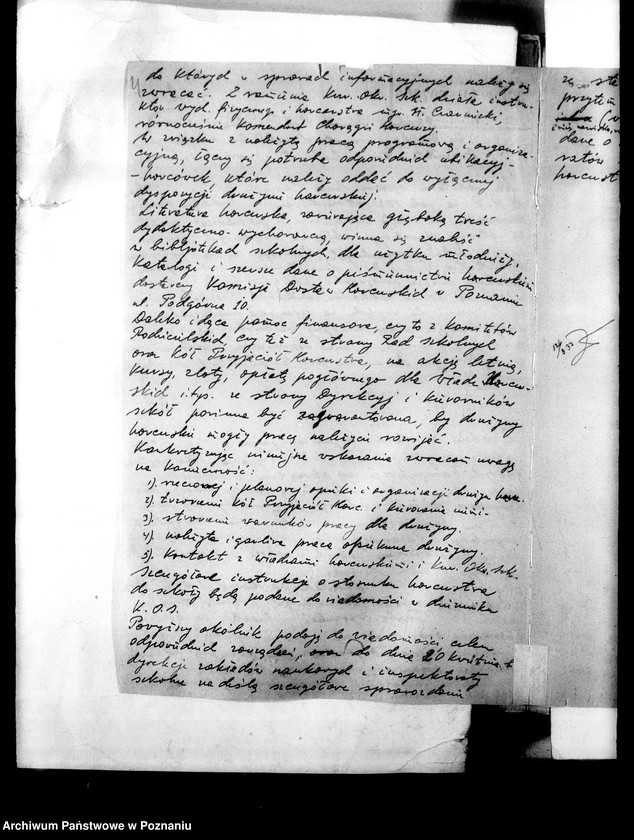 do których w sprawach informacyjnych należy się
zwracać. Z ramienia Kur. Okr. Szk. działa instru-
ktor wych. fizycznego i harcerstwa mgr. H. Czarnecki,
równocześnie Komendant Chorągwi Harcerzy.
W związku z należytą pracą programową i organiza-
cyjną, łączy się potrzeba odpowiednich ubikacyj-
-harcówek, które należy oddać do wyłącznej
dyspozycji drużyn harcerskiej.
Literatura harcerska, zawierająca głęboką treść
dydaktyczno-wychowawczą, winna się znaleźć
w bibljotekach szkolnych, dla użytku młodzieży,
Katalogi i dane o piśmiennictwie harcerskim
dostarczy Komisja Dostaw Harcerskich w Poznaniu
ul. Podgórna 10.
Daleko idąca pomoc finansowa, czy to z Komitetów
Rodzicielskich, czy też ze strony Rad szkolnych
oraz Kół Przyjaciół Harcerstwa, na akcję letnią,
kursy, zloty, opłatę pogłównego dla Władz Harcer-
skich itp. ze strony Dyrekcyj i kierowników
szkół powinna być zagwarantowana, by drużyny
harcerskie mogły pracę należycie rozwijać.
Konkretyzując niniejsze wskazania zwracam uwagę
na konieczność:
1). rzeczowej i planowej opieki i organizacji drużyn harc.
2). tworzenia kół Przyjaciół Harc. i kierowania nimi.
3). stworzenia warunków pracy dla drużyny.
4). należyta i gorliwa praca opiekuna drużyny.
5). Kontakt z władzami harcerskimi i Kur. Okr. Szk.
Szczegółowe instrukcje o stosunku harcerstwa
do szkoły będą podane do wiadomości w dzienniku
K. O. S.
Powyższy okólnik podaję do wiadomości celem
odpowiednich zarządzeń, oraz do dnia 20 kwietnia
dyrekcje zakładów naukowych i inspektoraty
szkolne nadeślą szczegółowe sprawozdania
za
przytem
dane o
harcerst
Archiwum Państwowe w Poznaniu